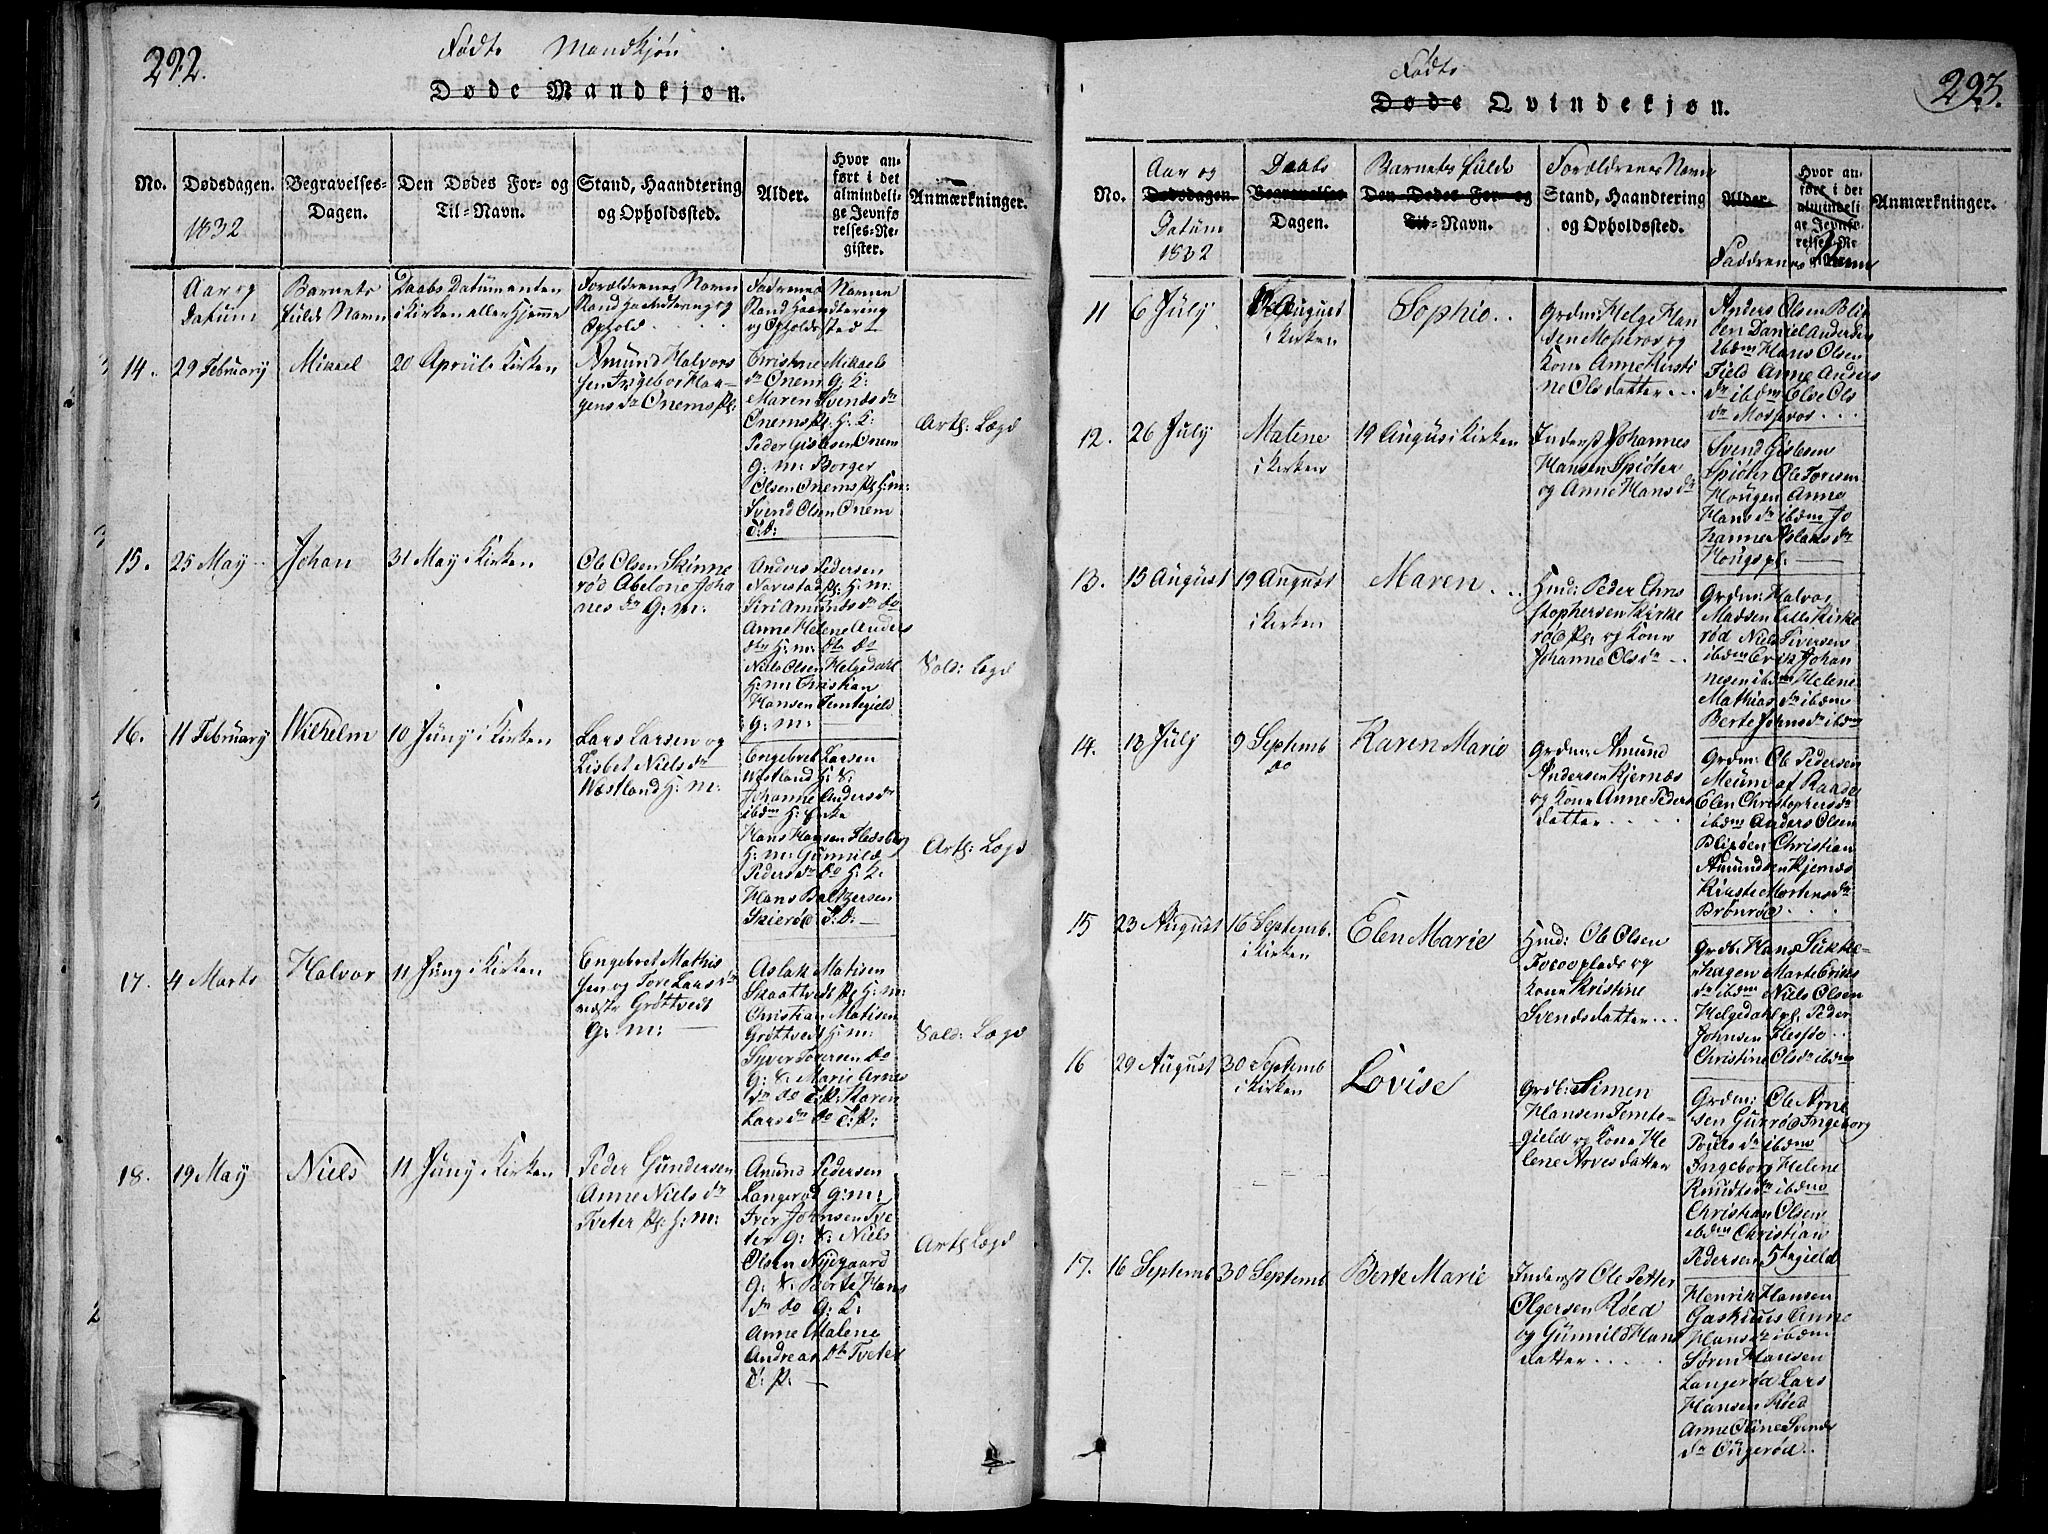 292.
Fødte Mandkjøn
Døde Mandkjøn.
No.
Dødsdagen.
1832
Begravelses-
Dagen.
Den Dødes For- og
Til-Navn.
Stand, Haandtering
og Opholdssted.
Alder.
Hvor an-
ført i det
almindeli-
ge Jevnfø
relses-Re-
gister.
Anmærkninger.
Aar og
Datum
Barnets
fulde Navn
Daabs Datum enten
i Kirken eller Hjemme
Forældrenes Navn
Stand Haandtering og
Ophold
Faddrenes Navne
Stand Haandtering
og Opholdssted
14.
29 February
Mikael
20 Aprül i Kirken
Amund Halvors
sen Ingebor Haa-
gens dr Onems Pl.
Christine Mikaels
dr Onem G: K:
Maren Svends dr
Onems Pl. H: K:
Peder Gislesen Onem
G: m: Borger
Olsen Onems Pl H: m:
Svend Olsen Onem
T: D:
Arth: Lægd
15.
25 May
Johan
31 May i Kirken
Ole Olsen Skinne
rød Abelone Joha
nes dr G: m:
Anders Pedersen
Narestad Pl: H: m:
Siri Amunds dr do
Anne Helene Anders
dtr H: m: dtr do
Niels Olsen Helgedahl
H: m: Christian
Hansen Temtegield
G: m:
Sold: Lægd
16.
11 February
Wilhelm
10 Juny i Kirken
Lars Larsen og
Lisbet Niels dr
Westland H: m:
Engebret Larsen
Westland H: K:
Johanne Anders dr
ibdm H: Enke
Hans Hansen Fledsberg
H: m: Gunnild
Peders dr do H: K:
Hans Baltzersen
Skierød T: D:
Arth: Lægd
17.
4 Marts
Halvor
11 Juny i Kirken
Engebret Mathis
sen og Tore Lars dr
nedre Grøttvedt
G: m:
Aslak Matisen
Skaattvedt Pl. H: m:
Christian Matisen
Grøttvedt H: m:
Syver Torersen do
G: S: Marie Arnes
dr do T: P: Karen
Lars dr do T: P:
Sold: Lægd
18.
19 May
Niels
11 Juny i Kirken
Peder Gundersen
Anne Niels dr
Tveter Pl. H: m:
Amund Pedersen
Langerød G: m:
Iver Johnsen Tve
ter G: S: Niels
Olsen Nyegaard
G: S: Berte Hans
dr do G: K:
Anne Malene
Andreas dtr Tveter
T: P.
Arth Lægd
2
293.
Fødte
Døde Qvindekjøn.
No.
Aar og
Dødsdagen.
Datum
1832
Daabs
Begravelses
Dagen.
Barnets fulde
Den Dødes For- og
Til-Navn.
Forældrenes Navn
Stand, Haandtering
og Opholdssted.
Alder.
Faddrenes Navne
Hvor an-
ført i det
almindeli
ge Jevnfø-
relses-Re
Anmærkninger.
11
6 July
August
i Kirken
Sophie
Grdm: Helge Han
sen Mosseros og
Kone Anne Kirsti
ne Olsdatter
Anders Olsen Blix
sen Daniel Andersen
ibdm Hans Olsen
Field Anne Anders
dr ibdm Elve Ols
dr Mosseros
12.
26 July
Malene
i Kirken
19 August i Kirken
Inderst Johannes
Hansen Spiøter
og Anne Hans dr
Svend Gislesen
Spiøter Ole Toresen
Hougen Anne
Hans dr ibdm Jo
hanne Aslaks dr
Hougs pl.
13.
13 August
19 August
i Kirken
Maren
Hmd: Peder Chris
stophersen Kirke
rød Pl. og Kone
Johanne Ols dr
Grdm: Halvor
Madsen Lille Kirke
rød Niels Siversen
ibdm Erik Johan
nesen ibdm Helene
Mathias dr ibdm
Berte Johns dr ibdm
14.
13 July
9 Septemb
do
Karen Marie
Grdm: Amund
Andersen Kjernæs
og Kone Anne Peders
datter
Grdm: Ole Pedersen
Meum af Raade
Elen Christophers dr
ibdm Anders Olsen
Blixsen Christian
Amundsen Kjernæs
Kirsti Mortens dr
Brønrød
15
23 August
16 Septemb.
i Kirken
Elen Marie
Hmd: Ole Olsen
Fosseplads og
Kone Kristine
Svendsdatter
Grdb. Hans Slikke-
rhagen Marte Eriks
dr ibdm Niels Olsen
Helgedahl pl. Peder
Johnsen Flesso
Christine Ols dr ibdm
16
29 August
30 Septemb
i Kirken
Lovise
Grdb: Simen
Hansen Temte-
gield og Kone He
lene Arvesdatter
Grdm: Ole Arne
sen Gurrød Ingeborg
Pouls dr ibdm
Ingeborg Helene
Knudts dr ibdm
Christian Olsen
ibdm Christian
Pedersen Stegield
17.
16 Septemb
30 Septemb
Berte Marie
Inderst Ole Petter
Olgersen Røed
og Gunnild Hans
datter
Henrik Hansen
Gaskuus Anne
Hans dr ibdm
Søren Hansen
Langerød Lars
Hansen Røed
Anne Oline Svends
dr Ougerød